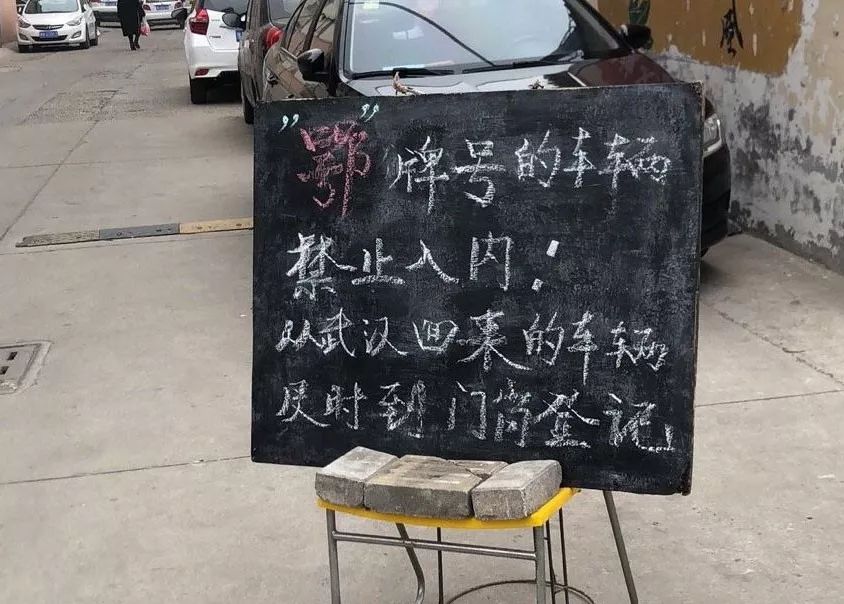 "鄂"牌号的车辆
禁止入内：
从武汉回来的车辆
及时到门岗登记」